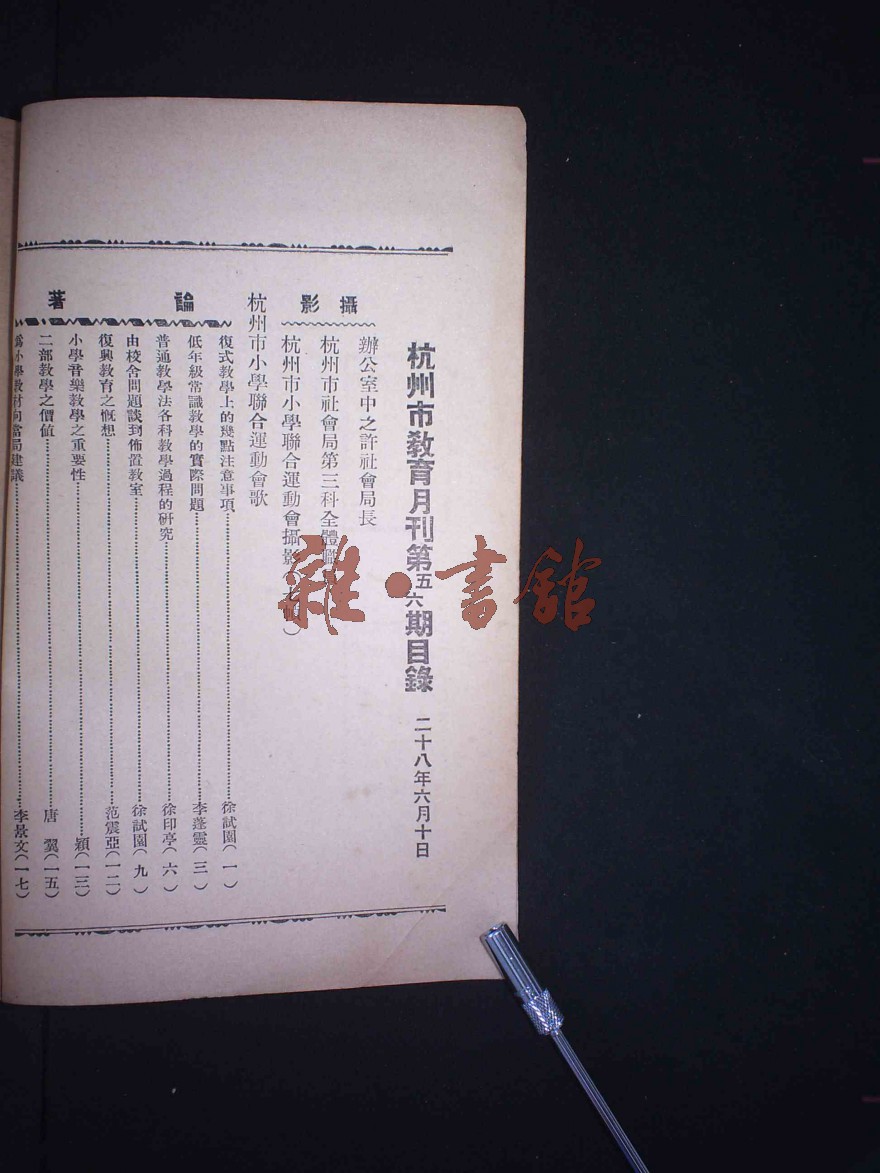 杭州市教育月刊第五六期目錄 二十八年六月十日
攝影
辦公室中之許社會局長
杭州市社會局第三科全體職
杭州市小學聯合運動會攝影
杭州市小學聯合運動會歌
論著
復式教學上的幾點注意事項 徐試園(一)
低年級常識教學的實際問題 李蓬靈(三)
普通教學法各科教學過程的研究 徐印亭(六)
由校舍問題談到佈置教室 徐試園(九)
復興教育之慨想 范震亞(一二)
小學音樂教學之重要性 穎(一三)
二部教學之價值 唐翼(一五)
爲小學教材向當局建議 李景文(一七)
雜·書館